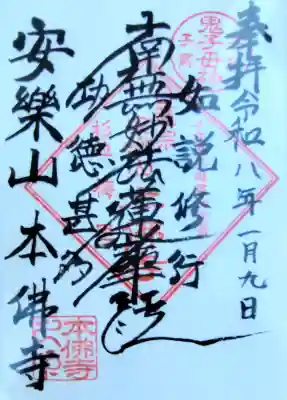 奉拝
令和八年一月九日
鬼子母神
如説修行
南無妙法蓮華経
功徳甚多
安樂山本佛寺
本佛寺